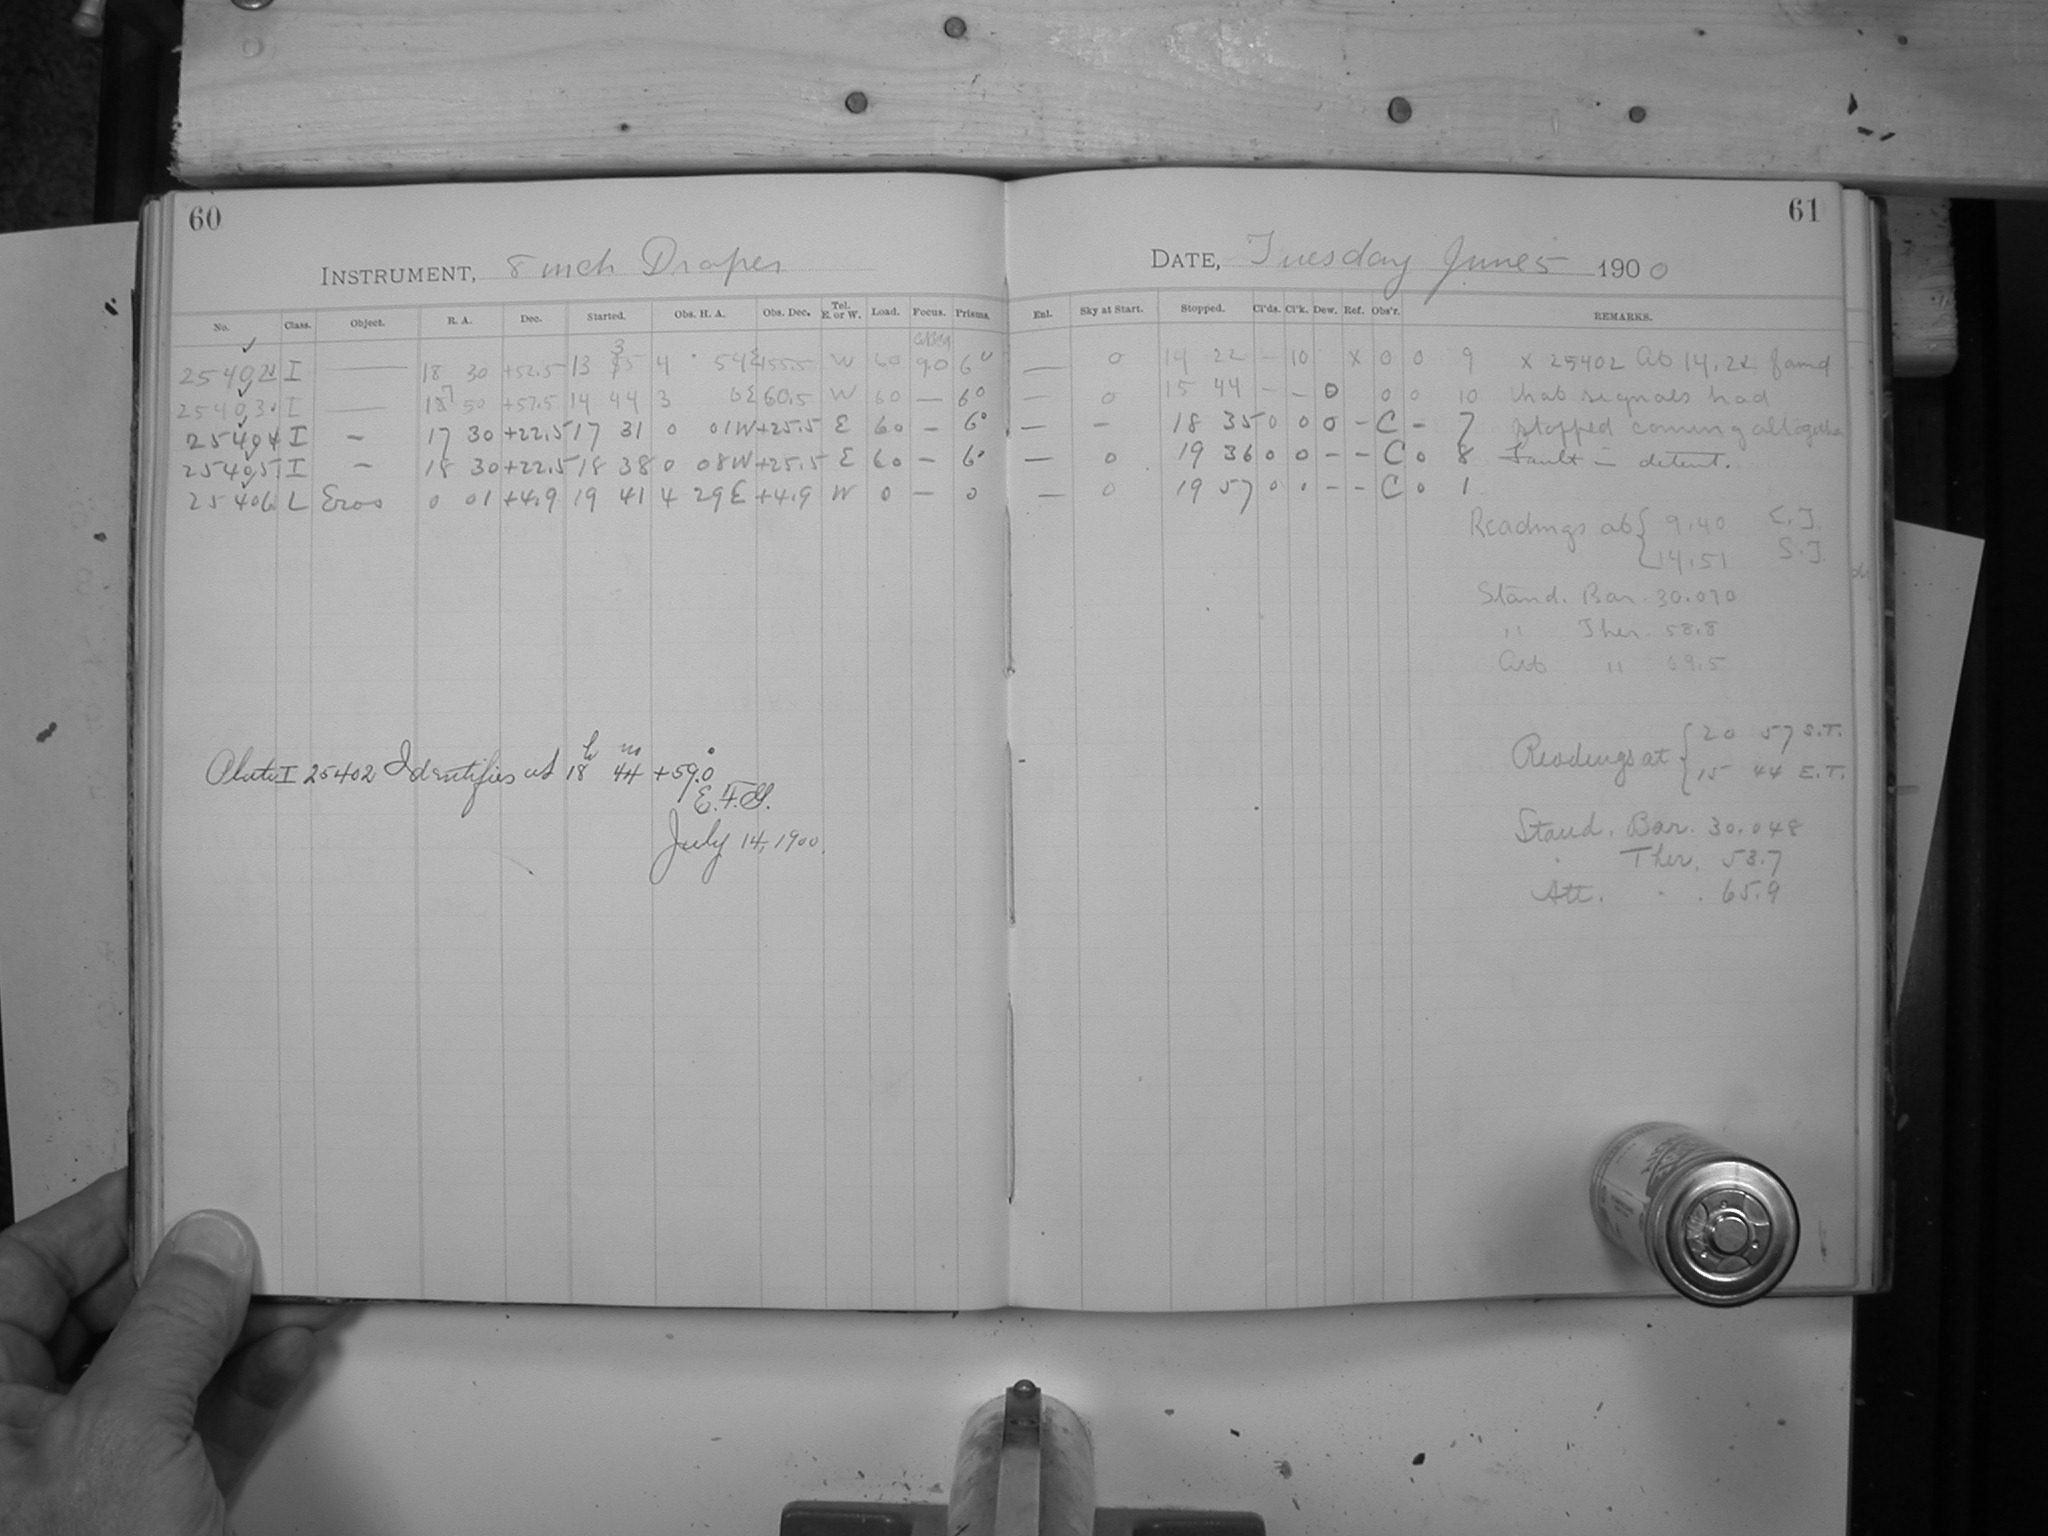 60
INSTRUMENT, 8 inch Draper
No. Class. Object. R. A. Dec. Started. Obs. H. A. Obs. Dec. Tel. E. or W. Load. Focus. Prisms.
25402 I — 18 30 +52.5 13 3 4 54 E 55.5 W 60 9.0 6°
25403 I — 50 +57.5 14 44 3 6 E 60.5 W 60 — 6°
25404 I — 17 30 +22.5 17 31 0 01 W +25.5 E 60 — 6°
25405 I — 18 30 +22.5 18 38 0 08 W +25.5 E 60 — 6°
25406 L Eros 0 01 +4.9 19 41 4 29 E +4.9 W 0 — 0
Plate I 25402 Identifies at 18h 44m +59.0°
E.F.G.
July 14, 1900.
61
DATE, Tuesday June 5 1900
Enl. Sky at Start. Stopped. Cl'ds. Cl'k. Dew. Ref. Obs'r. REMARKS.
— 0 14 22 – 10 x 0 0 9 x 25402 At 14.22 found
— 0 15 44 – – 0 0 0 10 that signals had
— – 18 35 0 0 0 – C – 7 stopped coming altogether
— 0 19 36 0 0 – – C 0 8 Fault in detent.
— 0 19 57 0 · – – C 0 1
Readings at { 9.40 E.T.
14.51 S.T.
Stand. Bar. 30.070
" Ther. 58.8
Att " 69.5
Readings at { 20 57 S.T.
15 44 E.T.
Stand. Bar. 30.048
Ther. 53.7
Att. . . 65.9